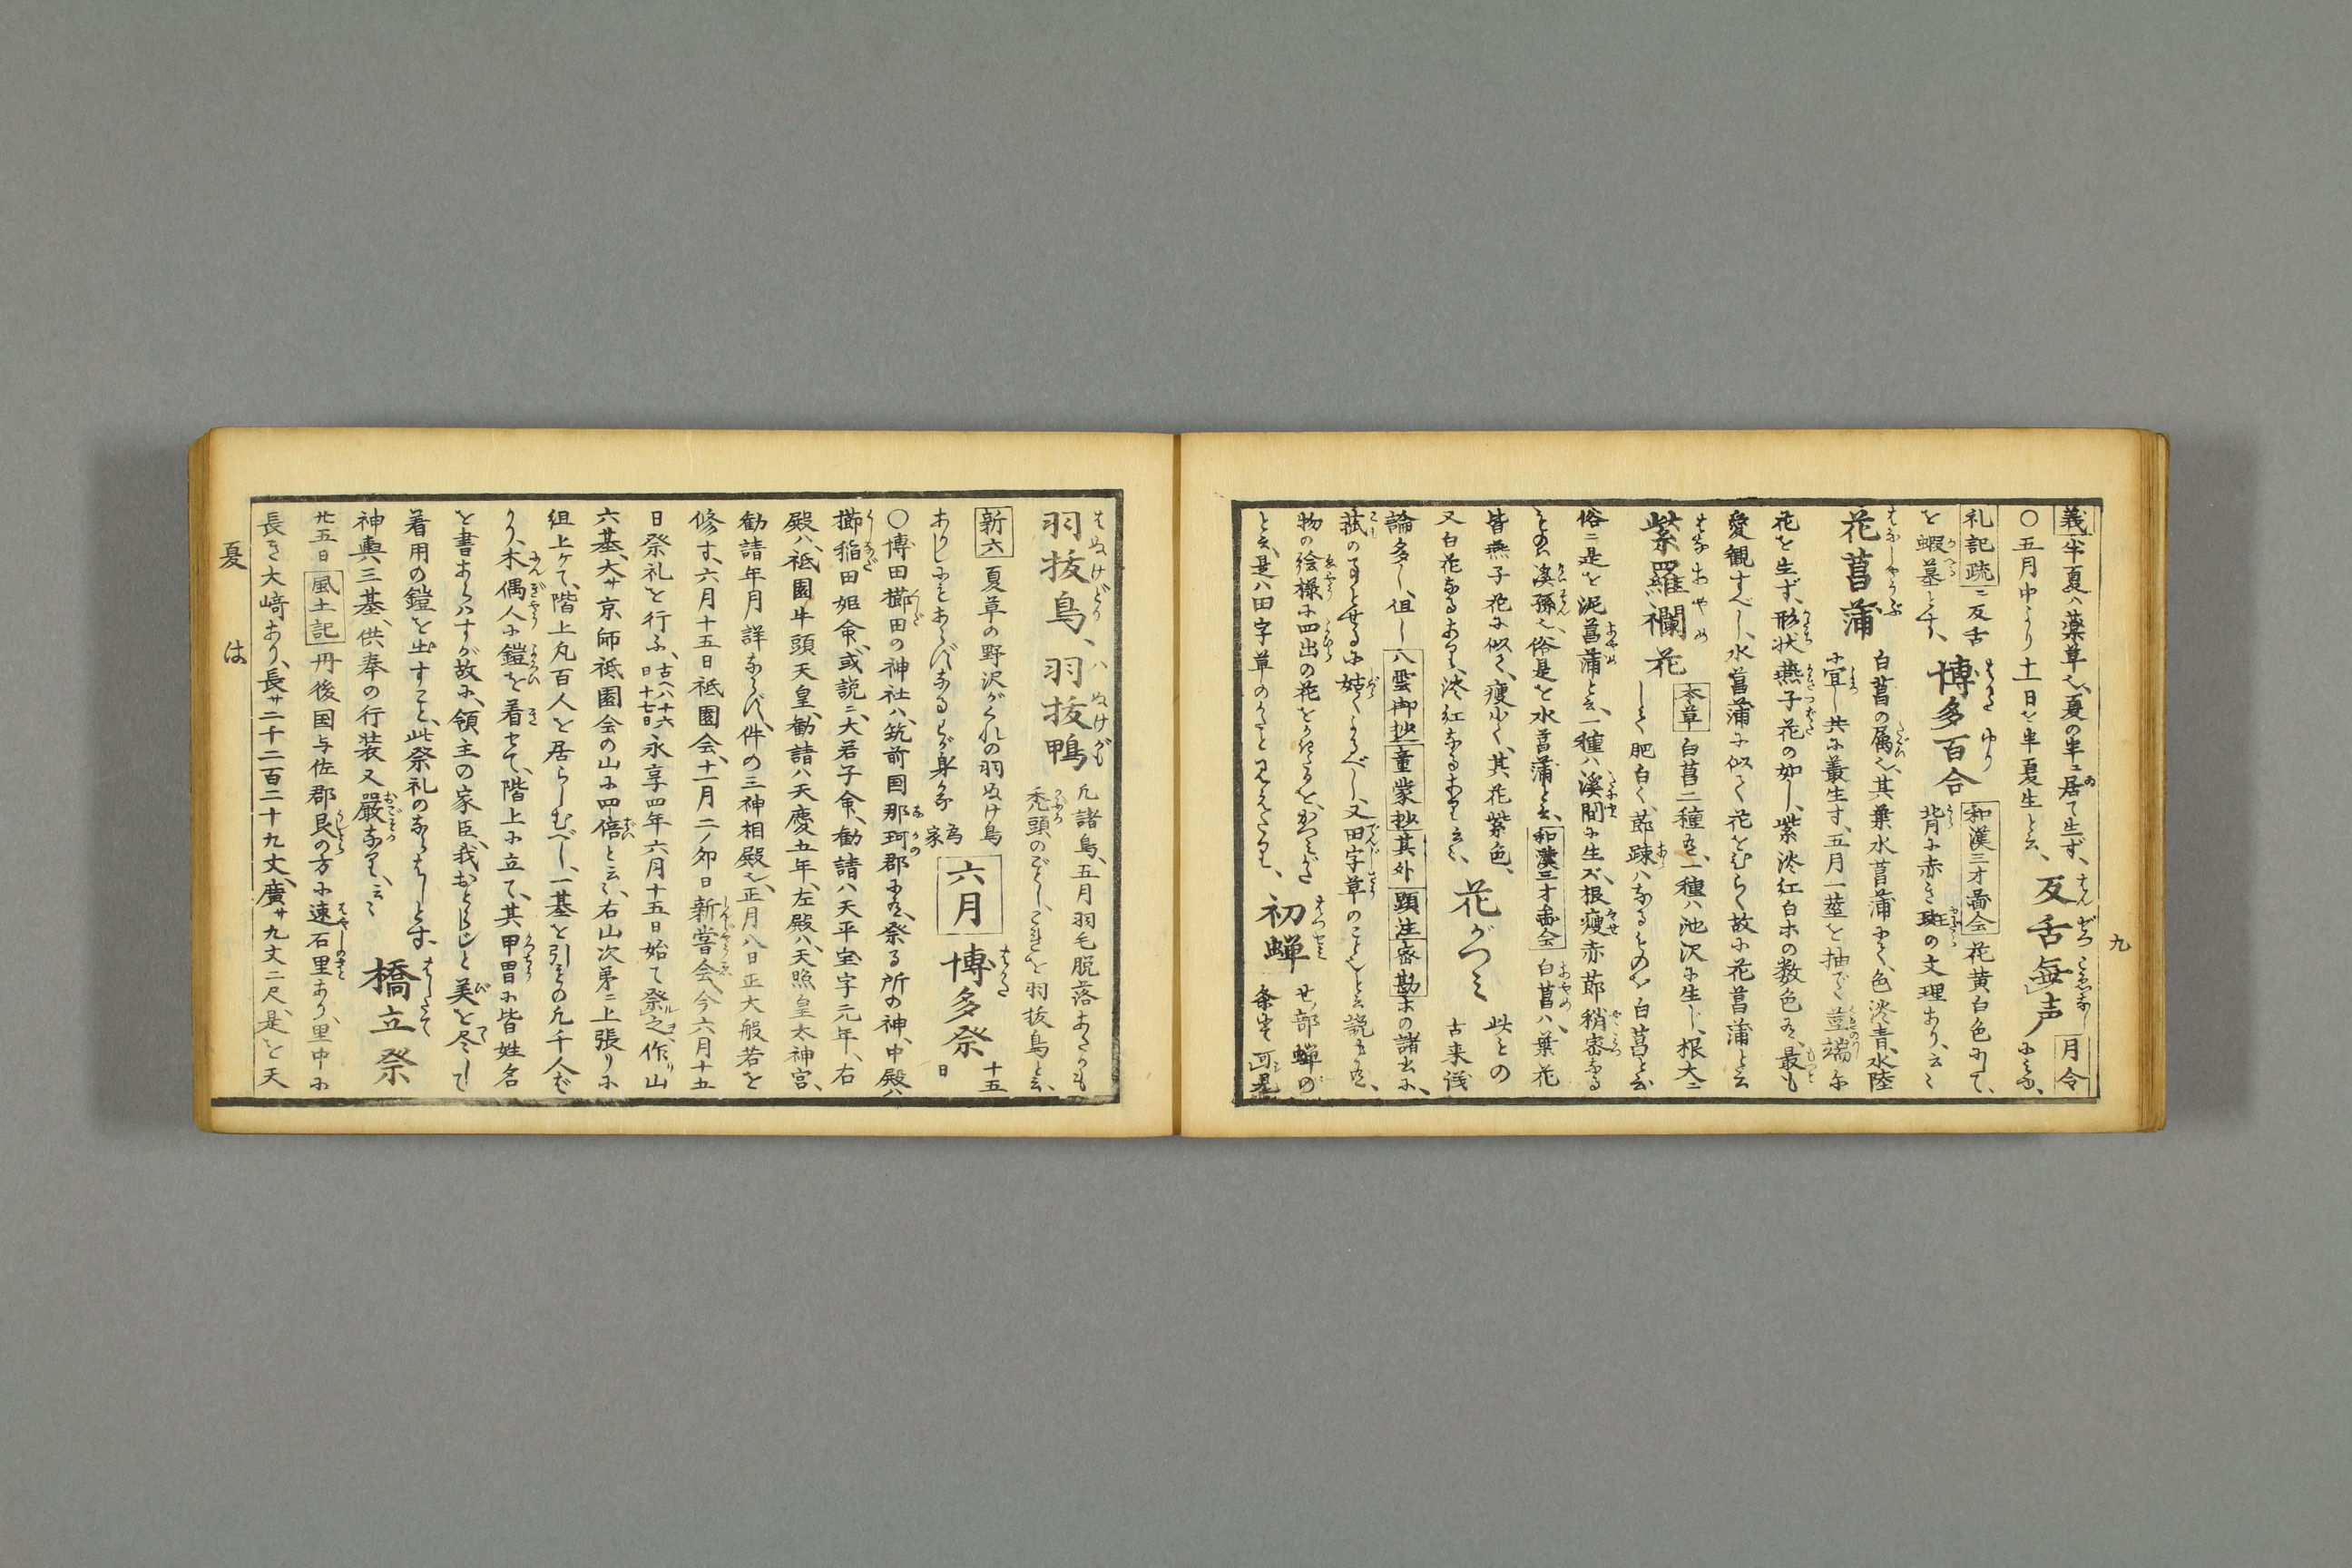 九
義半夏ハ薬草也、夏の半ニ居て生ず、反舌無声月令
〇五月中より十一日を半夏生と云、
礼記疏ニ反舌
を蝦蟇とす、博多百合和漢三才啚会花黄白色にして、
背に赤き斑の文理あり、云々
花菖蒲白菖の属也、其葉水菖蒲
に宜し共に叢生す、五月一茎を抽で
花を生ず、形状燕子花の如し、紫淡紅白ホの数色有、最も
愛観すべし、水菖蒲に似て花をひらく故に花菖蒲と云
紫羅襴花本草白菖二種有、一種ハ池沢に生じ、根大ニ
して肥白く、節疎ハなるものを白菖と云
俗ニ是を泥菖蒲と云、一種ハ溪間に生ズ、根痩赤節稍密なる
ものハ溪孫也、俗是を水菖蒲と云、和漢三才啚会白菖ハ葉花
皆燕子花に似て、痩少く、其花紫色、
又白花なるあり、淡紅なるあり云々、花がつみ此もの
古来議
論多し、但し八雲御抄童蒙抄其外顕注密勘ホの諸書に、
菰の事とせるに姑くよるべし、又田字草のことゝと云説も有、
物の絵様に四出の花をかけるを、かつみがた
と云、是ハ田字草のかたと見えたり、初蝉せ部蝉の
条末可見
羽抜鳥、羽抜鴨凡諸鳥、五月羽毛脱落あたかも
禿頭のごとし、これを羽抜鳥と云、
新六夏草の野沢がくれの羽ぬけ鳥
ありしにもあらずなるわが身かな為家六月博多祭十五日
〇博田櫛田の神社ハ、筑前国那珂郡に有、祭る所の神、中殿ハ
櫛稲田姫命、或説ニ大若子命、勧請ハ天平宝字元年、右
殿ハ、祗園牛頭天皇、勧請ハ天慶五年、左殿ハ、天照皇太神宮、
勧請年月詳ならず、件の三神相殿也、正月八日正大般若を
修す、六月十五日祗園会、十一月二ノ卯日新嘗会、今六月十五
日祭礼を行ふ、古ヘハ十六日十七日永享四年六月十五日始て祭之、作リ山
六基、大サ京師祗園会の山に四倍と云々、右山次第ニ上張りに
組上ゲて、階上凡百人を居らしむべし、一基を引もの凡千人ばか
り、木偶人に鎧を着せて、階上に立て、其甲冑に皆姓名
を書あらハすが故に、領主の家臣、我おとらじと美を尽して
着用の鎧を出すこと、此祭礼のならはしとす、
神輿三基、供奉の行装又嚴なり、云々橋立祭
廿五日風土記丹後国与佐郡艮の方に速石里あり、里中に
長き大﨑あり、長サ二千二百二十九丈、廣サ九丈二尺、是を天
夏は